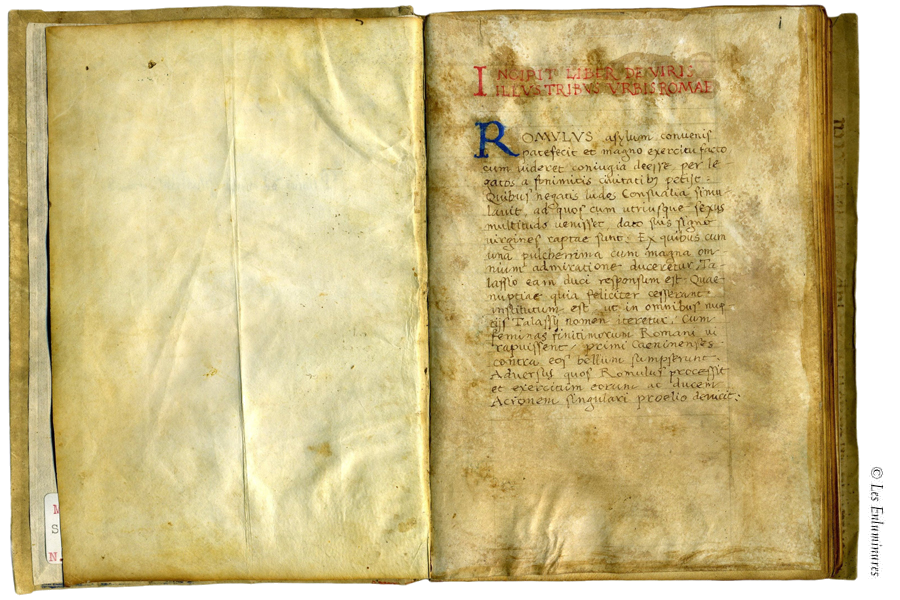 1
INCIPIT LIBER DE VIRIS
ILLVSTRIBVS VRBIS ROMAE
ROMVLVS asylum convenis
patefecit et magno exercitu facto
cum videret coniugia deesse per le
gatos a finimitis civitatibꝫ petiit.
Quibus negatis ludos Consualia simu
lavit, ad quos cum utriusque sexus
multitudo venisset, dato suis signo
virgines raptae sunt. Ex quibus cum
una pulcherrima cum magna om
nium admiratione duceretur, Ta
lassio eam duci responsum est. Quae
nuptiae quia feliciter cesserant
institutum est, ut in omnibus nup
tiis Talassij nomen iteretur. Cum
feminas finitimorum Romani vi
rapuissent, primi Caeninenses
contra eos bellum sumpserunt.
Adversus quos Romulus processit
et exercitum eorum ac ducem
Acronem singulari proelio devicit:
M
S
N.
© Les Enluminures